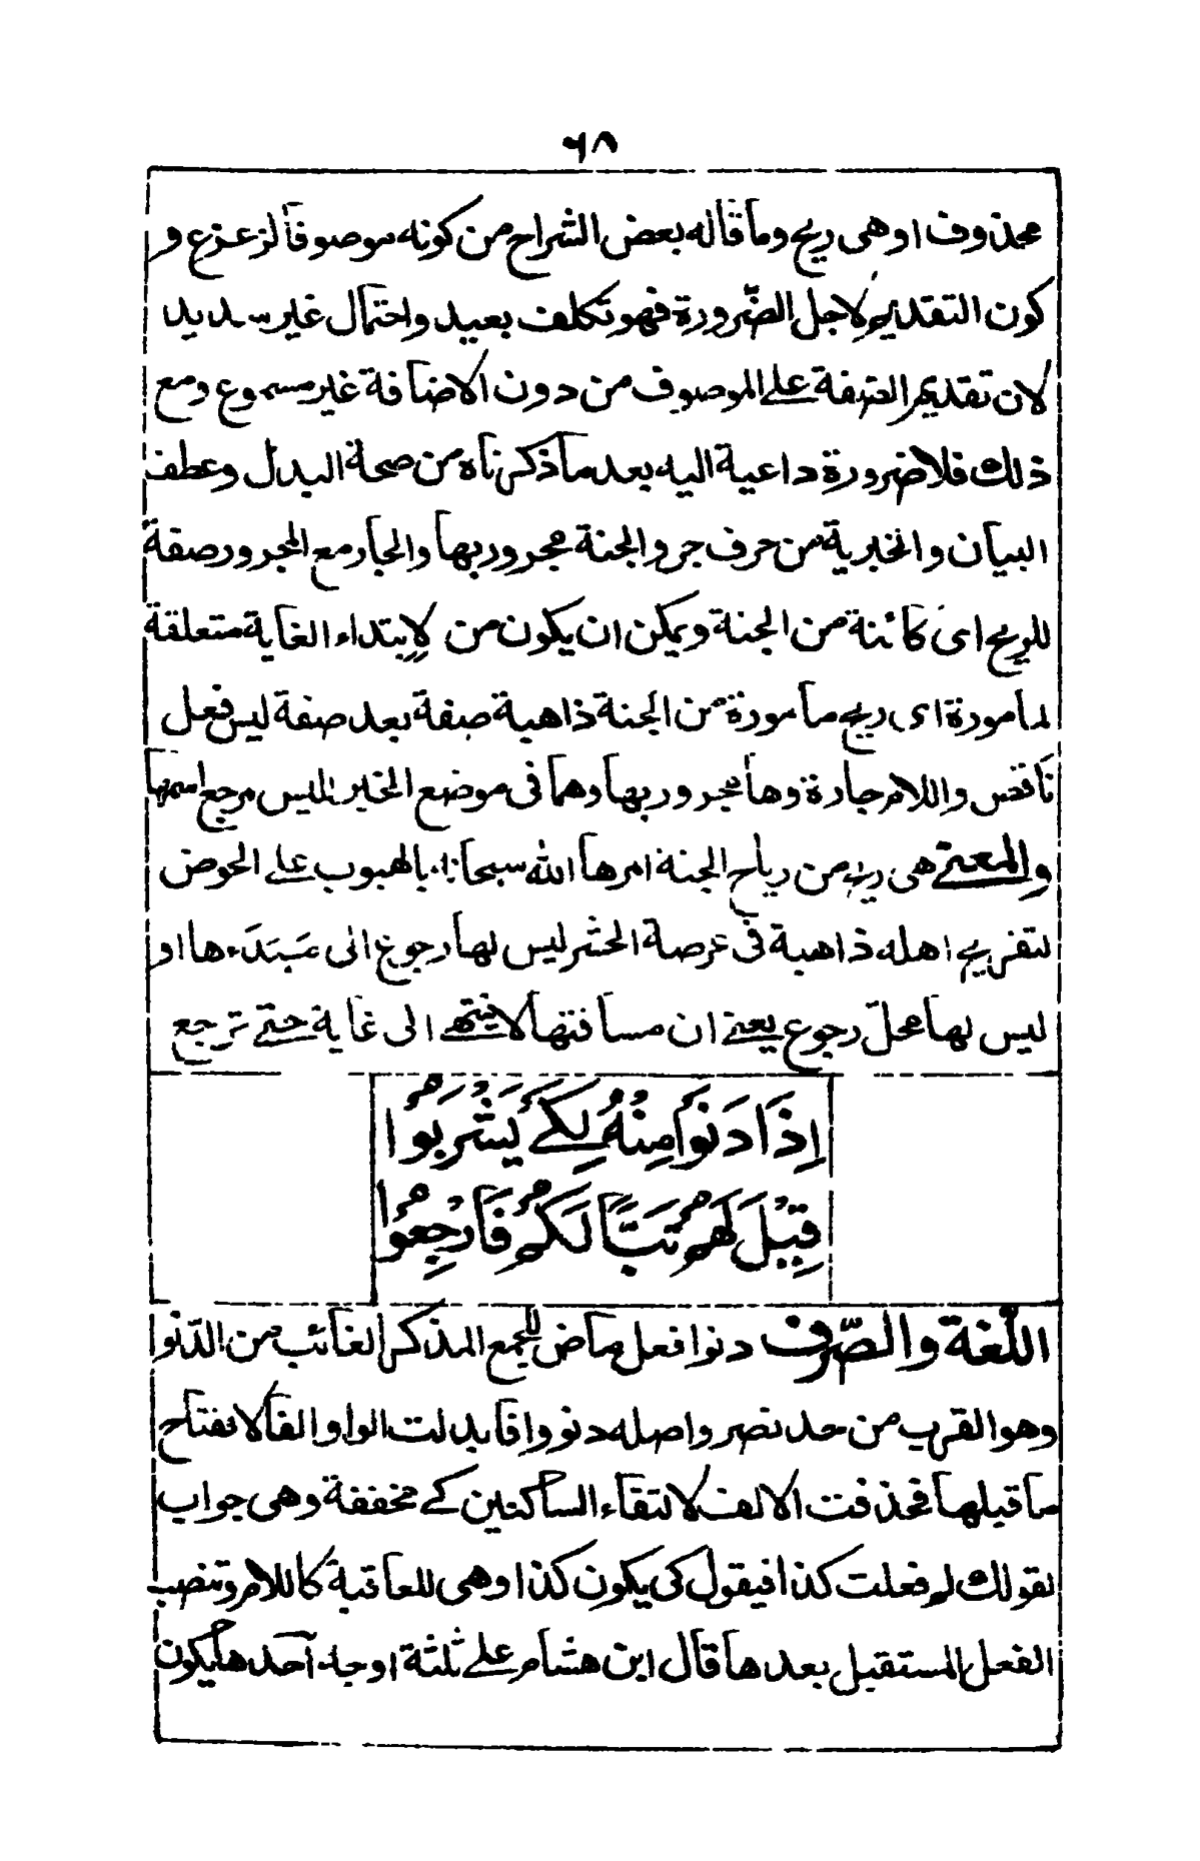 ٦٨
محذوف او هى ريح وما قاله بعض الشراح من كونه موصوفا لزعزع و
كون التقديم لاجل الضّرورة فهو تكلف بعيد واحتمال غير سديد
لان تقديم الصفة على الموصوف من دون الاضافة غير مسموع ومع
ذلك فلا ضرورة داعية اليه بعد ما ذكرناه من صحة البدل وعطف
البيان والخبرية من حرف جر والجنة مجرور بها والجار مع المجرور صفة
للريح اى كائنة من الجنة ويمكن ان يكون من لابتداء الغاية متعلقة
لمأمورة اى ريح مأمورة من الجنة ذاهبة صفة بعد صفة ليس فعل
ناقص واللام جارة وها مجرور بها وهما فى موضع الخبر لليس مرجع اسمها
والمعنے هى ريح من رياح الجنة امرها الله سبحانه بالهبوب على الحوض
لتفريح اهله ذاهبة فى عرصة الحشر ليس لها رجوع الى مَبتَدَءها او
ليس لها محلّ رجوع يعنے ان مسافتها لا ينتهے الى غاية حتے ترجع
اِذَا دَنَوْا مِنْهُ لِكَےْ يَشْرَبُوْا
قِيْلَ لَهُمْ تَبًّا لَكُمْ فَارْجِعُوْا
اللّغة والصّرف دنوا فعل ماض للجمع المذكر الغائب من الدّنوا
وهو القرب من حد نصر واصله دنووا قابدلت الواو الفا لانفتاح
ما قبلها فحذفت الالف لالتقاء الساكنين كے مخففة وهى جواب
لقولك لم فعلت كذا فيقول كى يكون كذا وهى للعاقبة كاللام وتنصب
الفعل المستقبل بعدها قال ابن هشام على ثلثة اوجه آحدها يكون